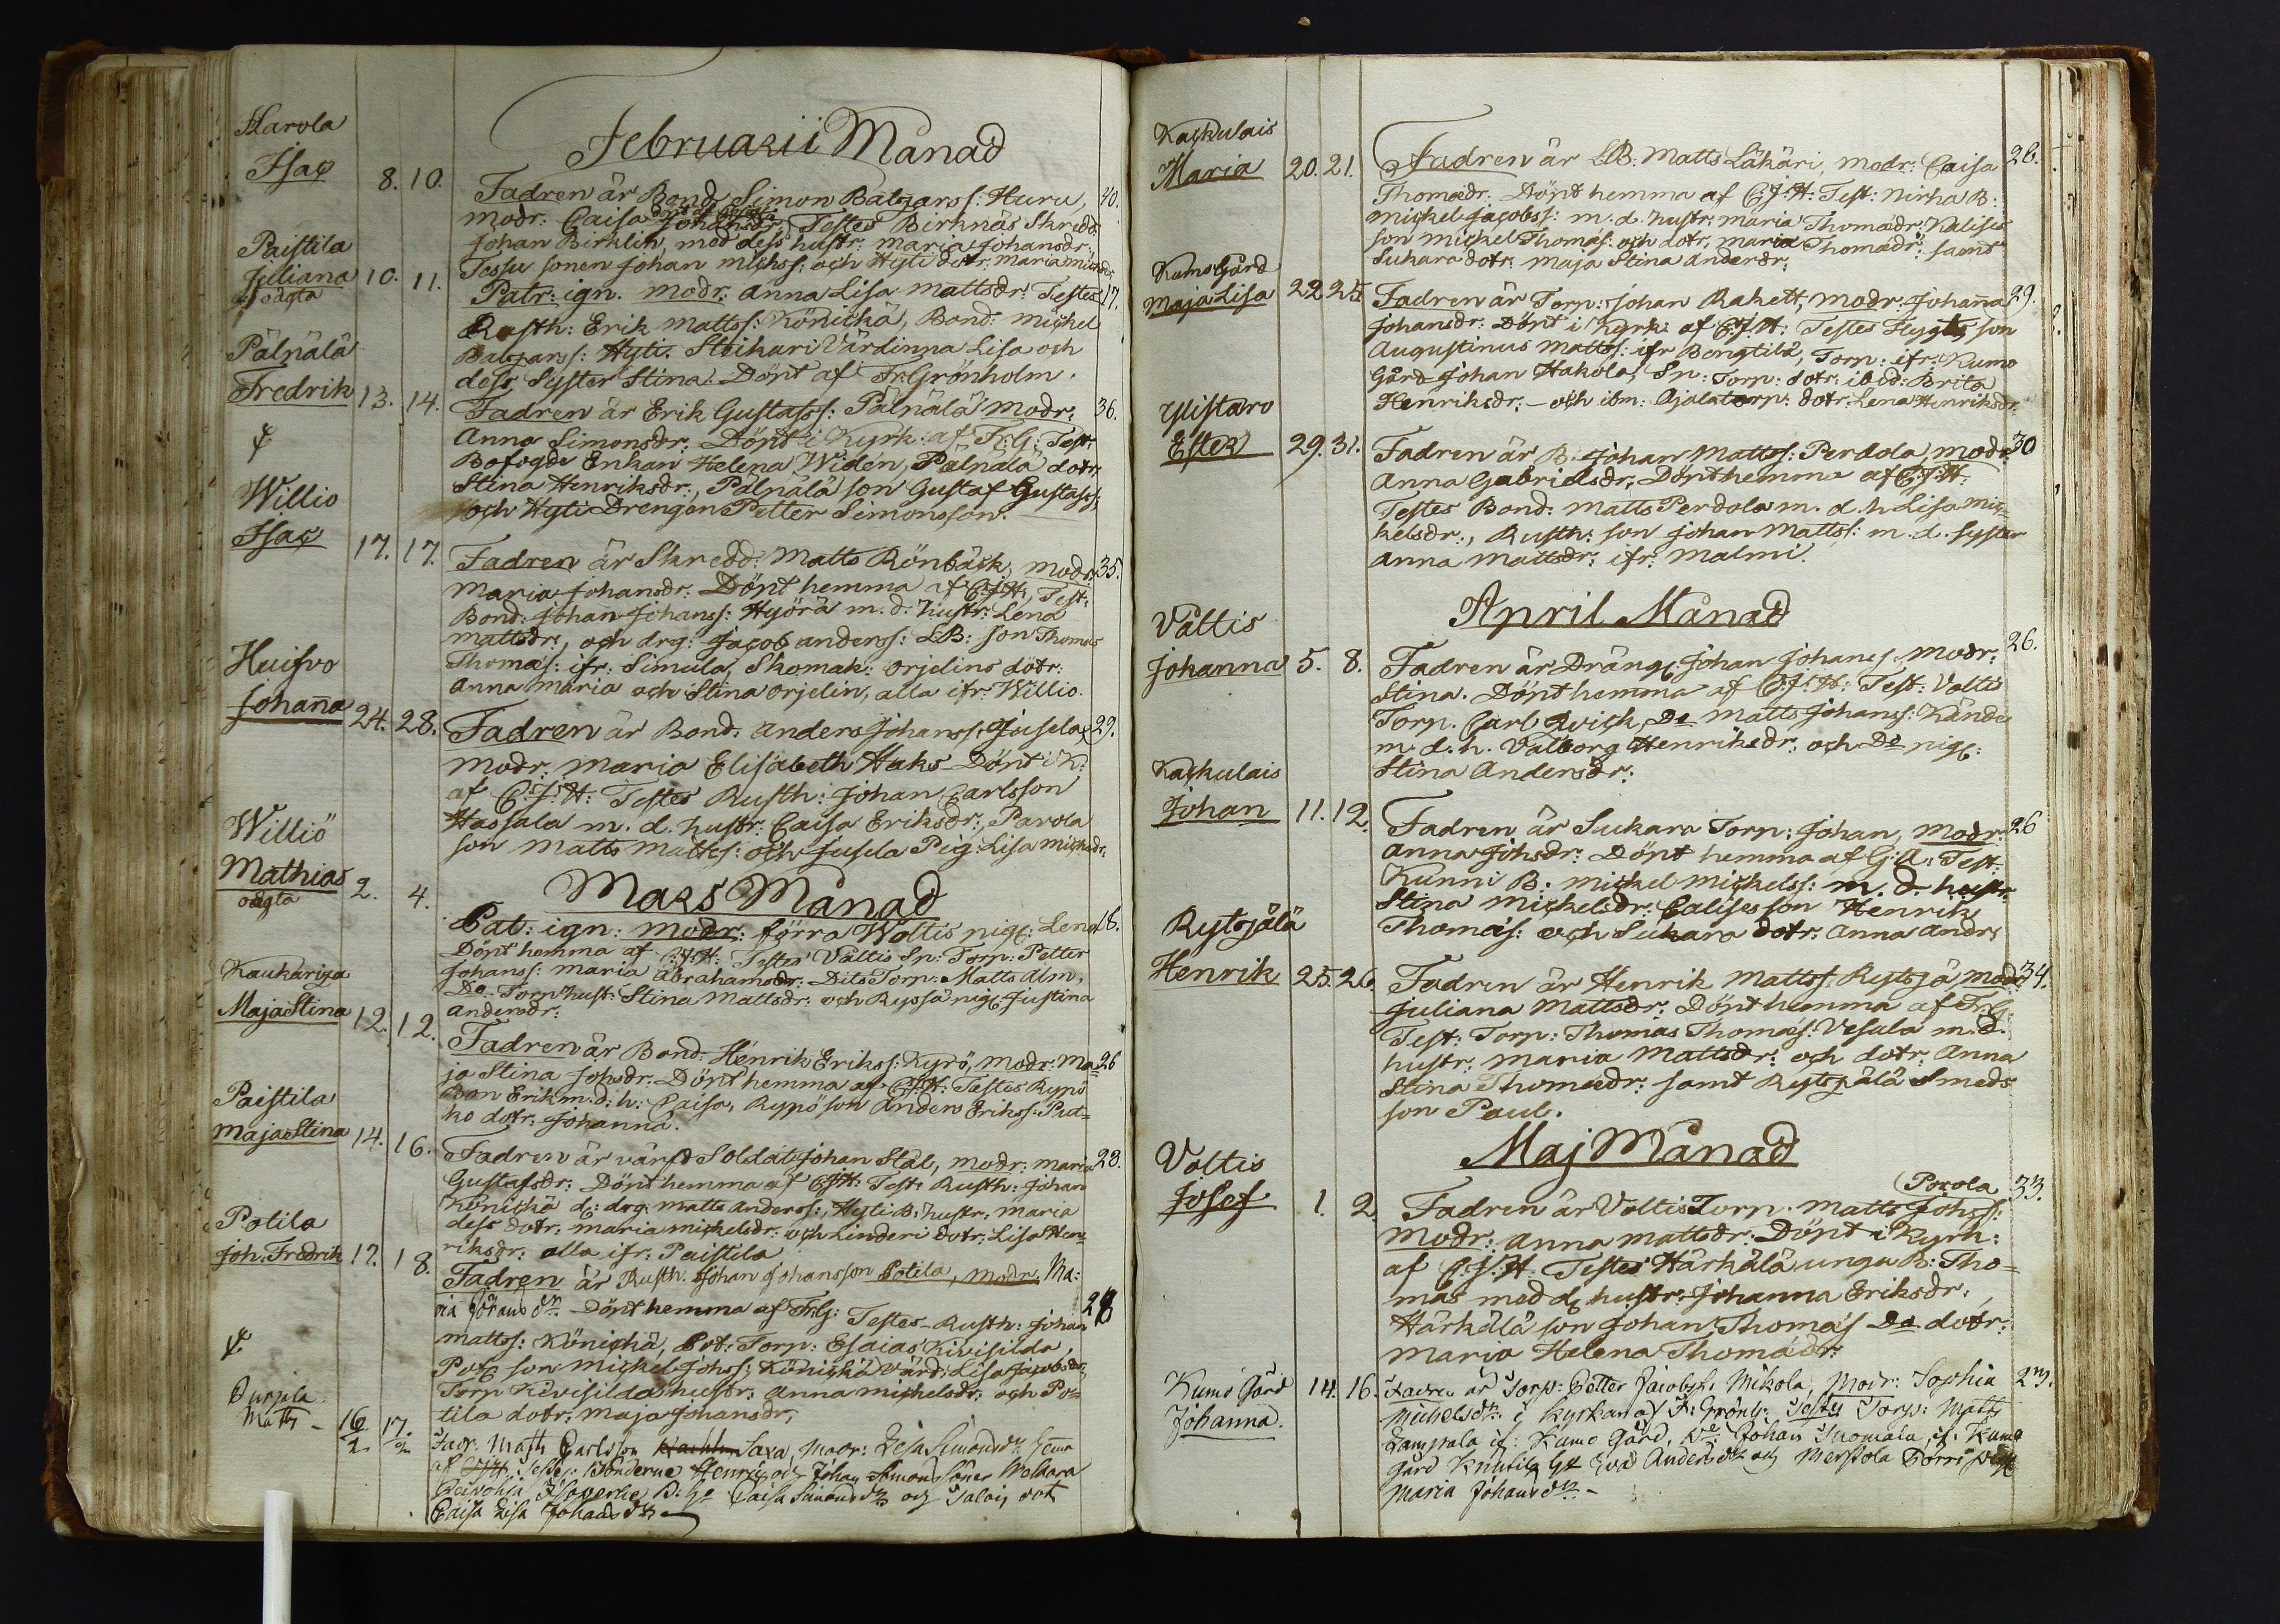 Februarii Månad
Harola
Isac 8. 10. Fadren är Bond. Simon Balzarss: Huru, 40.
modr. Caisa Johansdr. Testes Birknäs Skredd.
Johan Birklin, med dess hustr: Maria Johansdr:
Tessu sonen Johan Michss: och Hyti dotr. Maria
Paistila
Juliana 10. 11. Patr: ign. modr: Anna Lisa Mattsdr: Testes 17.
oägta
Rusth: Erik Mattss: Könickä, Bond: Michel
Balzarss: Hyti. Stickari Värdinna Lisa och
dess Syster Stina. Döpt af Fr: Grönholm.
Pälnälä
Fredrik 13. 14. Fadren är Erik Gustafss: Pälnälä modr: 36.
Anna Simonsdr: Döpt i Kyrk: af Fr. G: Test:
Bofogde Enkan Helena Widén, Pälnälä dotr.
Stina Henriksdr:, Pälnälä son Gustaf Gustafss:
och Hyti Drengen Petter Simonsson.
Willio
Isac 17. 17. Fadren är Skredd: Matts Rönbäck, modr: 35.
Maria Johansdr: Döpt hemma af C.J.H: Test:
Bond: Johan Johanss: Hyörä m. d. hustr: Lena
Mattsdr:, och drg: Jacob Anderss: LB: son Thomas
Thomass: ifr: Simula, Skomak: Orjelins dotr:
Anna Maria och Stina Orjelin, alla ifr: Willio.
Huisvo
Johanna 24. 28. Fadren är Bond. Anders Johanss: Jusela, 29.
modr. Maria Elisabeth Haks Döpt i K:
af C.J.H: Testes Rusth: Johan Carlsson
Hassala m. d. hustr: Caisa Eriksdr:, Parola
son Matts Mattss: och Jusela Pig: Lisa Michsdr:
Mars Månad
Williö
Mathias 2. 4. Pat: ign: modr: förra Woltis pig: Lena 18.
oägta
Döpt hemma af C.J.H: Testes Valtis Sp: Torp: Petter
Johanss: Maria Abrahamsdr: Dito Torp: Matts Alm,
Do Torp hust: Stina Mattsdr: och Rypsä pig: Justina
Andersdr:
Kaukariza
Maja Stina 12. 12. Fadren är Bond: Henrik Erikss: Kypö, modr: Ma= 26
ja Stina Johsdr: Döpt hemma af C.J.H: Testes Kypö
Bon Erik m. d: h: Caisa, Kypö son Anders Erikss: Pud=
ko dotr: Johanna.
Paistila
Maja Stina 14. 16. Fadren är värfd Soldat Johan Stål, modr: Maria 28.
Gustafsdr: Döpt hemma af C.J.H: Test: Rusth: Johan
Könickä d: drg: Matts Anderss:, Hyti B: hustr: Maria
dess dotr: Maria Michelsdr: och Linderi dotr: Lisa Hen=
riksdr: alla ifr: Paistila
Potila
Joh: Fredrik 17. 18. Fadren är Rusth. Johan Johansson Potila, modr. Ma:
ria Johansdr. Döpt hemma af Fr. G: Testes Rusth: Johan 28
Mattss: Könickä, Pot: Torp: Esaias Kivisilda,
Pot: son Michel Johss: Könickä värd: Lisa Jacobsdr:
Torp Kivisilda hustr: Anna Michelsdr: och Po=
tila dotr: Maja Johansdr,
Matts 16/2 17/2 Fadr. Matts Carlsson Saxa, Modr: Lisa Simonsdr: hema
af Testes: Bönderne Henric och Johan Simons Söner
Caisa Simonsdr och dotr
Caisa Lisa Johansdr
Kackulais
Maria 20. 21. Fadren är LB: Matts Lähäri, modr: Caisa 28.
Thomasdr: Döpt hemma af C.J.H: Test: Nirha B:
Michel Jacobss: m. d. hustr: Maria Thomasdr: Kalises
son Michel Thomass: och dotr: Maria Thomasdr: samt
Sukara dotr: Maja Stina Andersdr:
Kumo Gård
Maja Lisa 22. 25. Fadren är Torp: Johan Rakett, modr: Johanna 29.
Johansdr: Döpt i Kyrk: af C.J.H: Testes Flygts son
Augustinus Mattss: ifr Bengtilä, Torp: ifr: Kumo
Gård Johan Hakola, Sp: Torp: dotr: ibid: Brita
Henriksdr: – och ibm: Ojala torp: dotr: Lena Henriksdr.
Ylistaro
Ester 29. 31. Fadren är B. Johan Mattss: Perdola, modr. 30
Anna Gabrielsdr: Döpt hemma af C.J.H.
Testes Bond: Matts Perdola m. d. h Lisa Mic=
kelsdr:, Rusth: son Johan Mattss: m. d. syster
Anna Mattsdr: ifr: Malmi.
April Månad
Vältis
Johanna 5. 8. Fadren är Dräng: Johan Johans: Modr: 26.
Stina. Döpt hemma af C.J.H: Test: Voltis
Torp. Carl Qvick, Do Matts Johanss: Kände
m. d. h. Valborg Henriksdr: och Do pig:
Stina Andersdr:
Kackulais
Johan 11. 12. Fadren är Sukara Torp: Johan, Modr: 26
Anna Johsdr: Döpt hemma af G: A: Test:
Kunni B: Michel Michelss: m. d. hustr:
Stina Michelsdr: Calises son Henrik
Thomass: och Sukara dotr: Anna Andr:
Rytsjälä
Henrik 25. 26. Fadren är Henrik Mattss: Rytsjä, Modr: 34.
Juliana Mattsdr: Döpt hemma af Fr. G:
Test: Torp: Thomas Thomass: Vesala m. d.
hustr: Maria Mattsdr: och dotr. Anna
Stina Thomasdr: samt Rytsjälä Smeds
son Paul.
Maj Månad
Voltis Porola
Josef 1. 2. Fadren är Voltis Torp. Matts Johss: 33.
modr: Anna Mattsdr: Döpt i Kyrk:
af C.J.H. Testes Härkälä unga B: Tho=
mas med d: hustr: Johanna Eriksdr:,
Härkälä son Johan Thomass Do dotr:
Maria Helena Thomasdr:
Kumo Gård 14. 16. Fadren är Torp: Petter Jacobss: Mikola, Modr: Sophia 27.
Johanna. Michelsdr. i Kyrkan af F: Grönh: Testes Torp: Matts
if: Kumo Gård, Do Johan Tuomala, if. Kumo
Gård Knutila Eva Andersdr och
Maria Johansdr. –